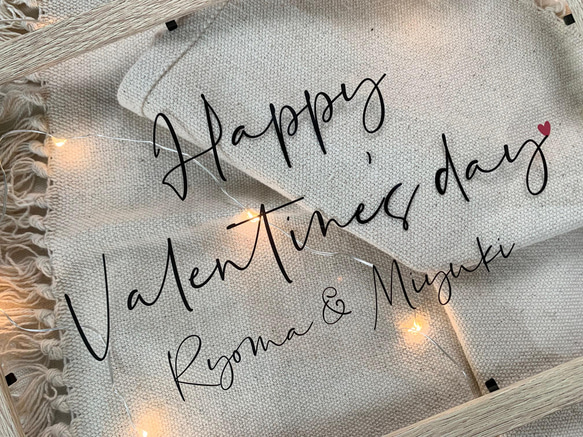 Happy
Valentine's day
Ryoma & Miyuki